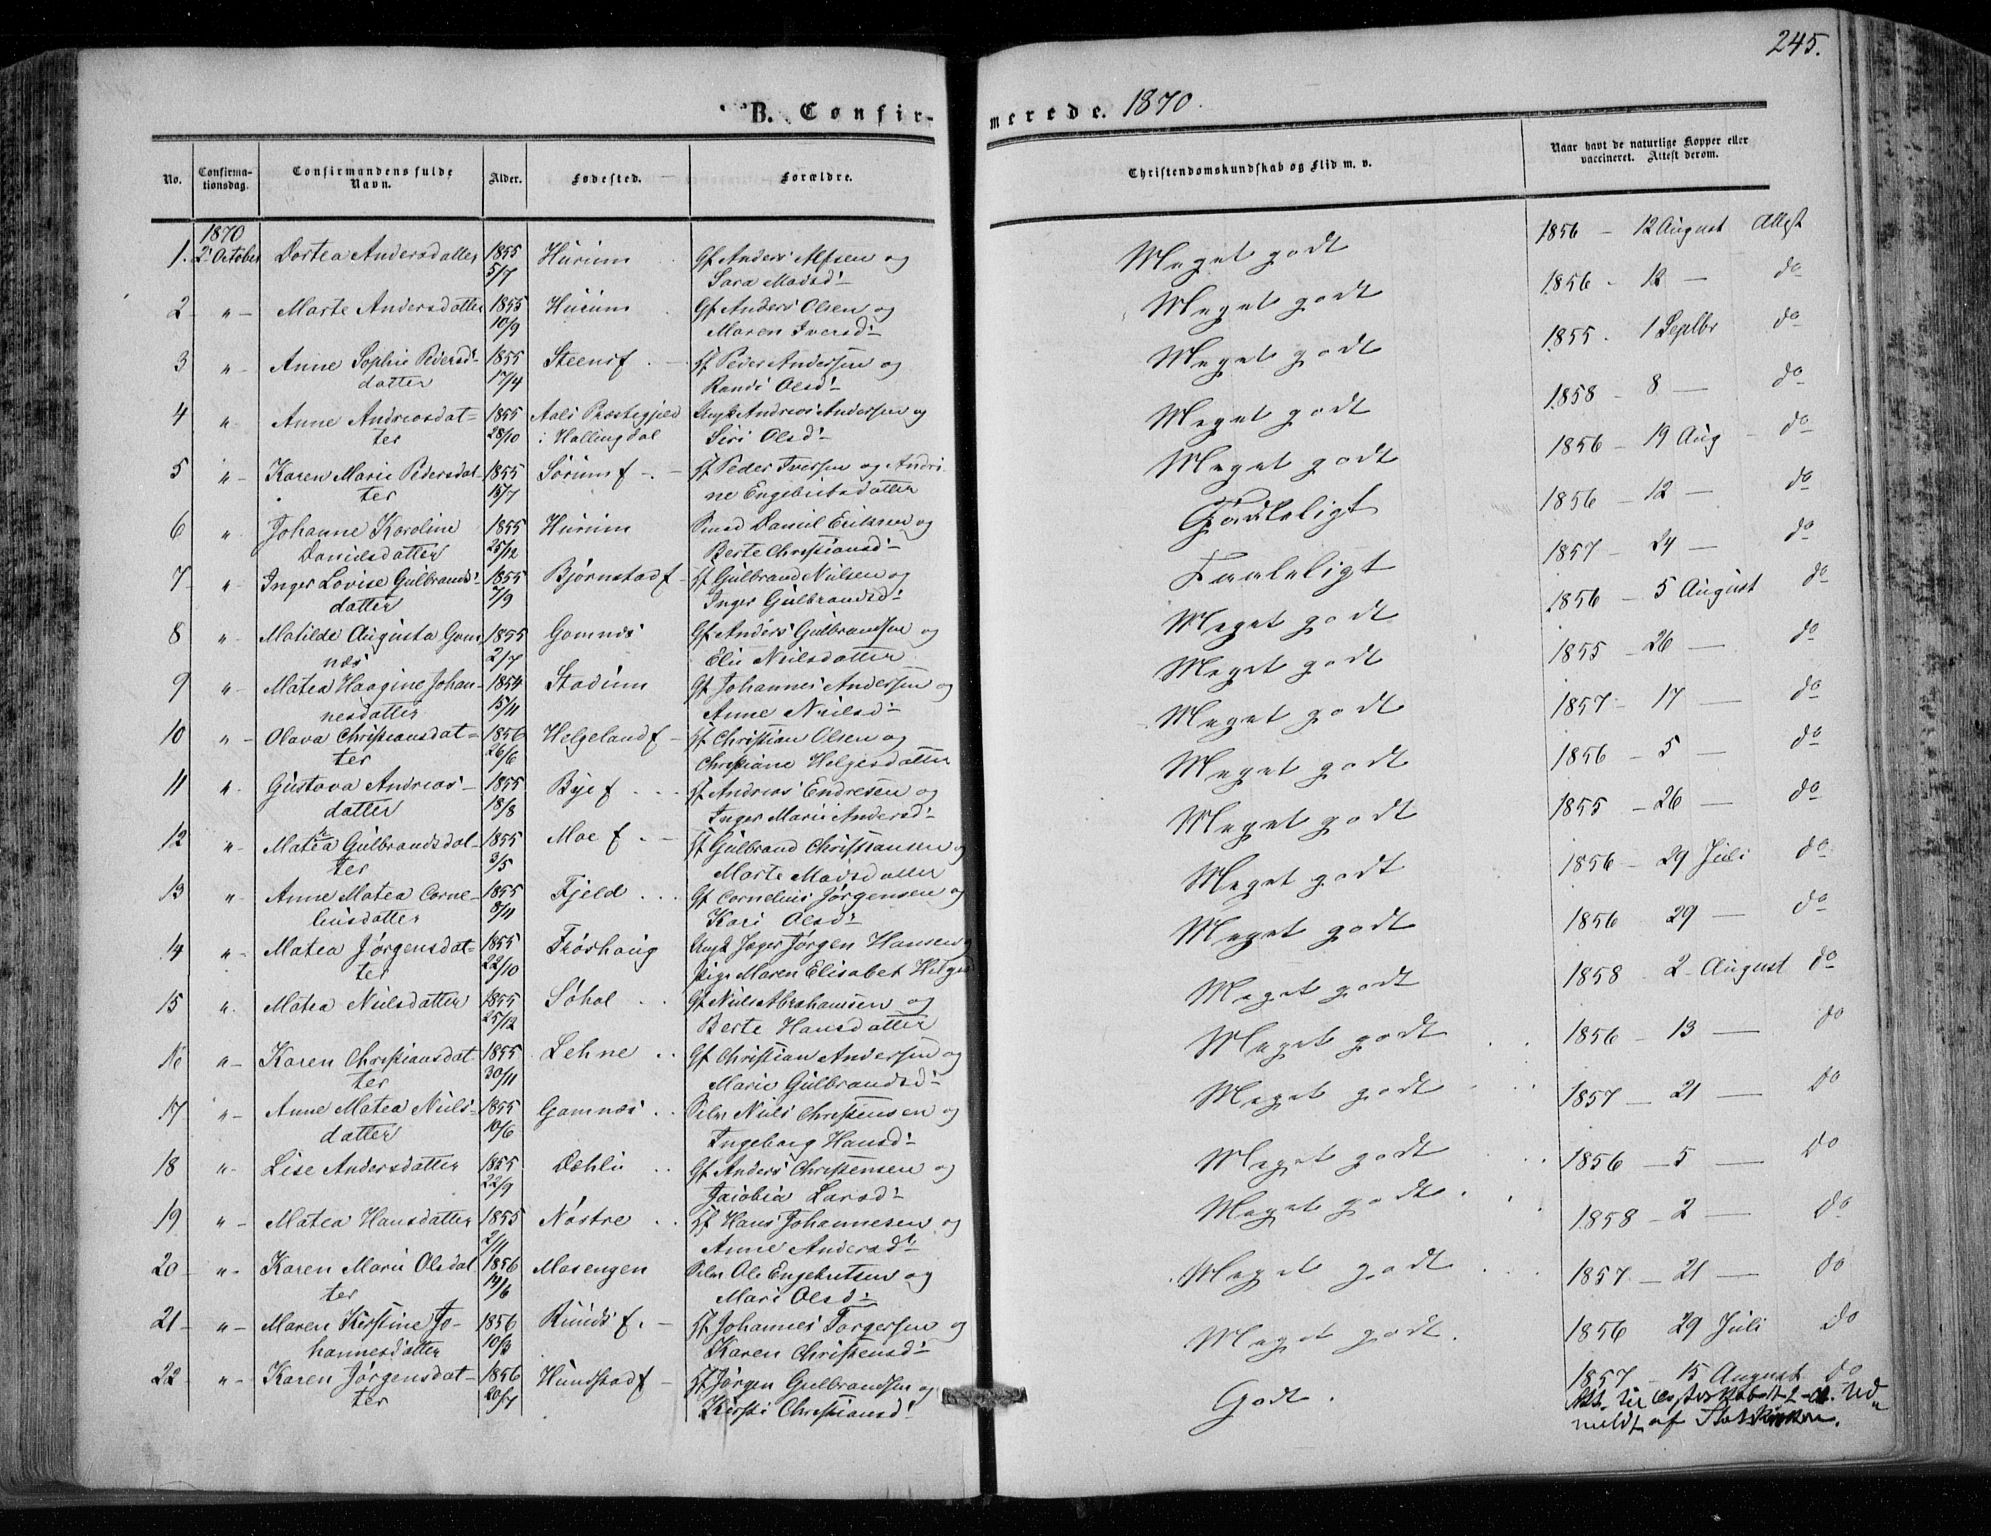 245.
B. Confirmerede. 1870.
No. Confirmationsdag. Confirmandens fulde Navn. Alder. Fødested. Forældre. Christendomskundskab og Flid m. v. Naar havt de naturlige Kopper eller vaccineret. Attest derom.
1870
1. 2 October Dortea Andersdatter 1855 5/7 Hurum Gf Anders Alfsen og Meget godt 1856 – 12 August Attest
Sara Madsd:
2 " – Marte Andersdatter 1855 10/9 Hurum Gf Anders Olsen og Meget godt 1856 – 12 — do
Maren Iversd:
3 " Anne Sophie Peders- 1855 17/4 Steensf Hf Peder Andersen og Meget godt 1855 1 Septbr do
datter Randi Olsd:
4 " Anne Andreasdat- 1855 28/10 Aals Præstegjeld Ungk Andreas Andersen og Meget godt 1858 – 8 — do
ter i Hallingdal Siri Olsd:
5 " – Karen Marie Pedersdat- 1855 15/7 Sørum f Hf Peder Iversen og Andri- Meget godt 1856 – 19 Aug – do
ter ne Engebretsdatter
6 " Johanne Karoline 1855 25/12 Hurum Daniel Eriksen og Taaleligt 1856 – 12 — do
Danielsdatter Berte Christiansd:
7 " Inger Lovise Gulbrands- 1855 2/9 Bjørnstad f Hf Gulbrand Nielsen og Taaleligt 1857 – 24 — do
datter Inger Gulbrandsd:
8 " Matilde Augusta Gom- 1855 2/7 Gomnæs Gf Anders Gulbrandsen og Meget godt 1856 – 5 August do
næs Elie Nielsdatter
9 " Matea Haagine Johan- 1854 15/11 Stadum Gf Johannes Andersen og Meget godt 1855 – 26 — do
nesdatter Anne Nielsd:
10 " – Olava Christiansdat- 1856 26/6 Helgeland f Hf Christian Olsen og Meget godt 1857 – 17 — do
ter Christiane Helgesdatter
11 " Gustava Andreas- 1855 18/8 Bye f Hf Andreas Endresen og Meget godt 1856 – 5 — do
datter Inger Marie Andersd:
12 " Matea Gulbrandsdat- 1855 3/5 Moe f Hf Gulbrand Christiansen og Meget godt 1855 – 26 — do
ter Marte Madsdatter
13 " Anne Matea Corne- 1855 8/11 Fjeld Gf Cornelius Jørgensen og Meget godt 1856 – 29 Juli do
liusdatter Kari Olsd:
14 " – Matea Jørgensdat- 1855 22/10 Frøshaug Ungk Jæger Jørgen Hansen og Meget godt 1856 29 — do
ter Pige Maren Elisabet Helges
15 " Matea Nielsdatter 1855 25/12 Søhol Gf Niels Abrahamsen og Meget godt 1858 – 2 August do
Berte Hansdatter
16 " – Karen Christiansdat 1855 30/11 Lehne Gf Christian Andersen og Meget godt 1856 – 13 — do
ter Marie Gulbrandsd:
17 " – Anne Matea Niels- 1855 10/6 Gomnæs Selv Niels Christensen og Meget godt 1857 – 21 — do
datter Ingeborg Hansd:
18 " Lise Andersdatter 1855 22/9 Dæhli Gf Anders Christensen og Meget godt 1856 – 5 — do
Jacobia Larsd:
19 " – Matea Hansdatter 1855 2/11 Nøstre Hf Hans Johannesen og Meget godt 1858 – 2 — do
Anne Andersd:
20 " – Karen Marie Olsdat 1856 Mosengen Selv Ole Engebretsen og Meget godt 1857 – 21 — do
ter Mari Olsd:
21 " – Maren Kirstine Jo- 1856 10/3 Runds f. Hf Johannes Torgersen og Meget godt 1856 29 Juli do
hannesdatter Karen Christensd:
22 " – Karen Jørgensdat- 1856 20/7 Hundstad f Hf Jørgen Gulbrandsen og Godt. 1857 – 15 August do
ter Kirsti Christiansd:
Ud-
meldt af Statskirken.